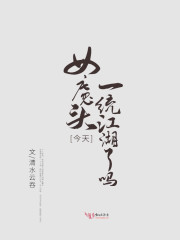 女魔头
[今天]
一统江湖了吗
文/清水云吞